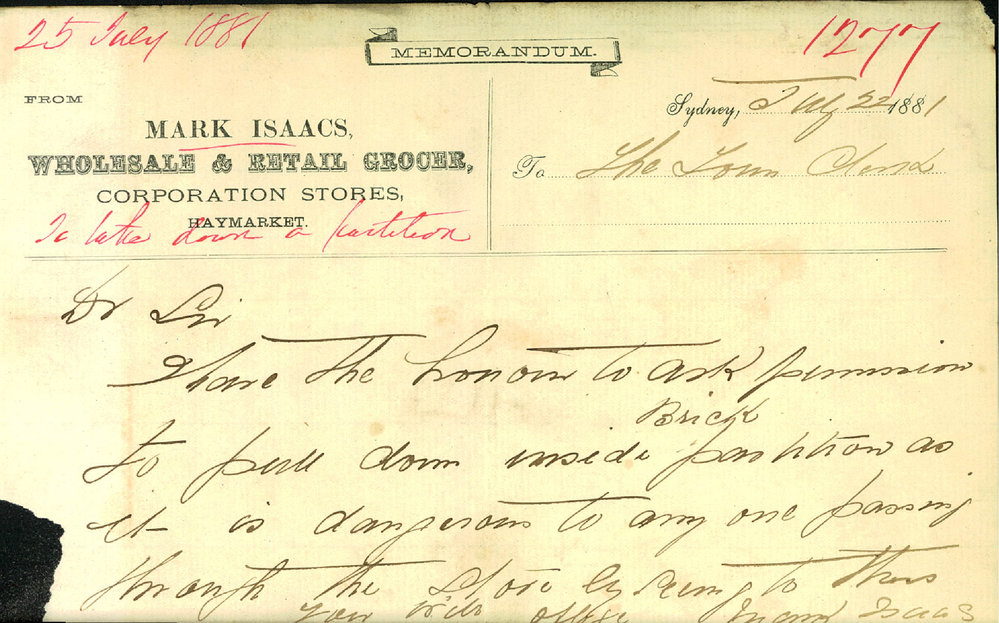 25 July 1881
1277
MEMORANDUM.
FROM
MARK ISAACS,
WHOLESALE & RETAIL GROCER,
CORPORATION STORES,
HAYMARKET.
To take down a partition
Sydney, July 22 1881
To The Town Clerk
Dr Sir
I have the honour to ask permission
Brick
to pull down inside partition as
it is dangerous to any one passing
through the store by seeing to this
you will oblige Mark Isaacs